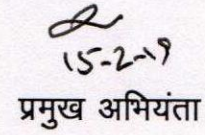 15-2-19
प्रमुख अभियंता